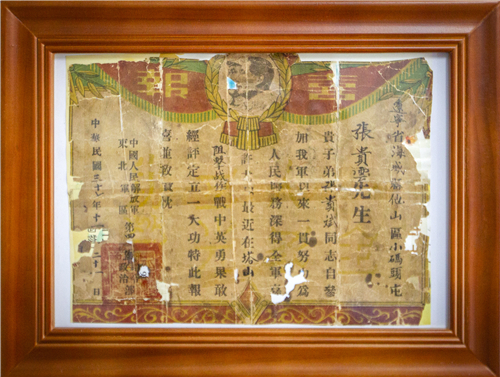 喜報
遼寧省海城縣山區小碼頭屯
張貴先生
貴子弟張貴斌同志自參
加我軍以來一貫努力為
人民服務深得全軍
最近在塔山
阻擊作戰中英勇果敢
經評定立一大功特此報
喜並致賀忱
中國人民解放軍
東北軍區
第四政治部
中華民國三十七年十月二十日